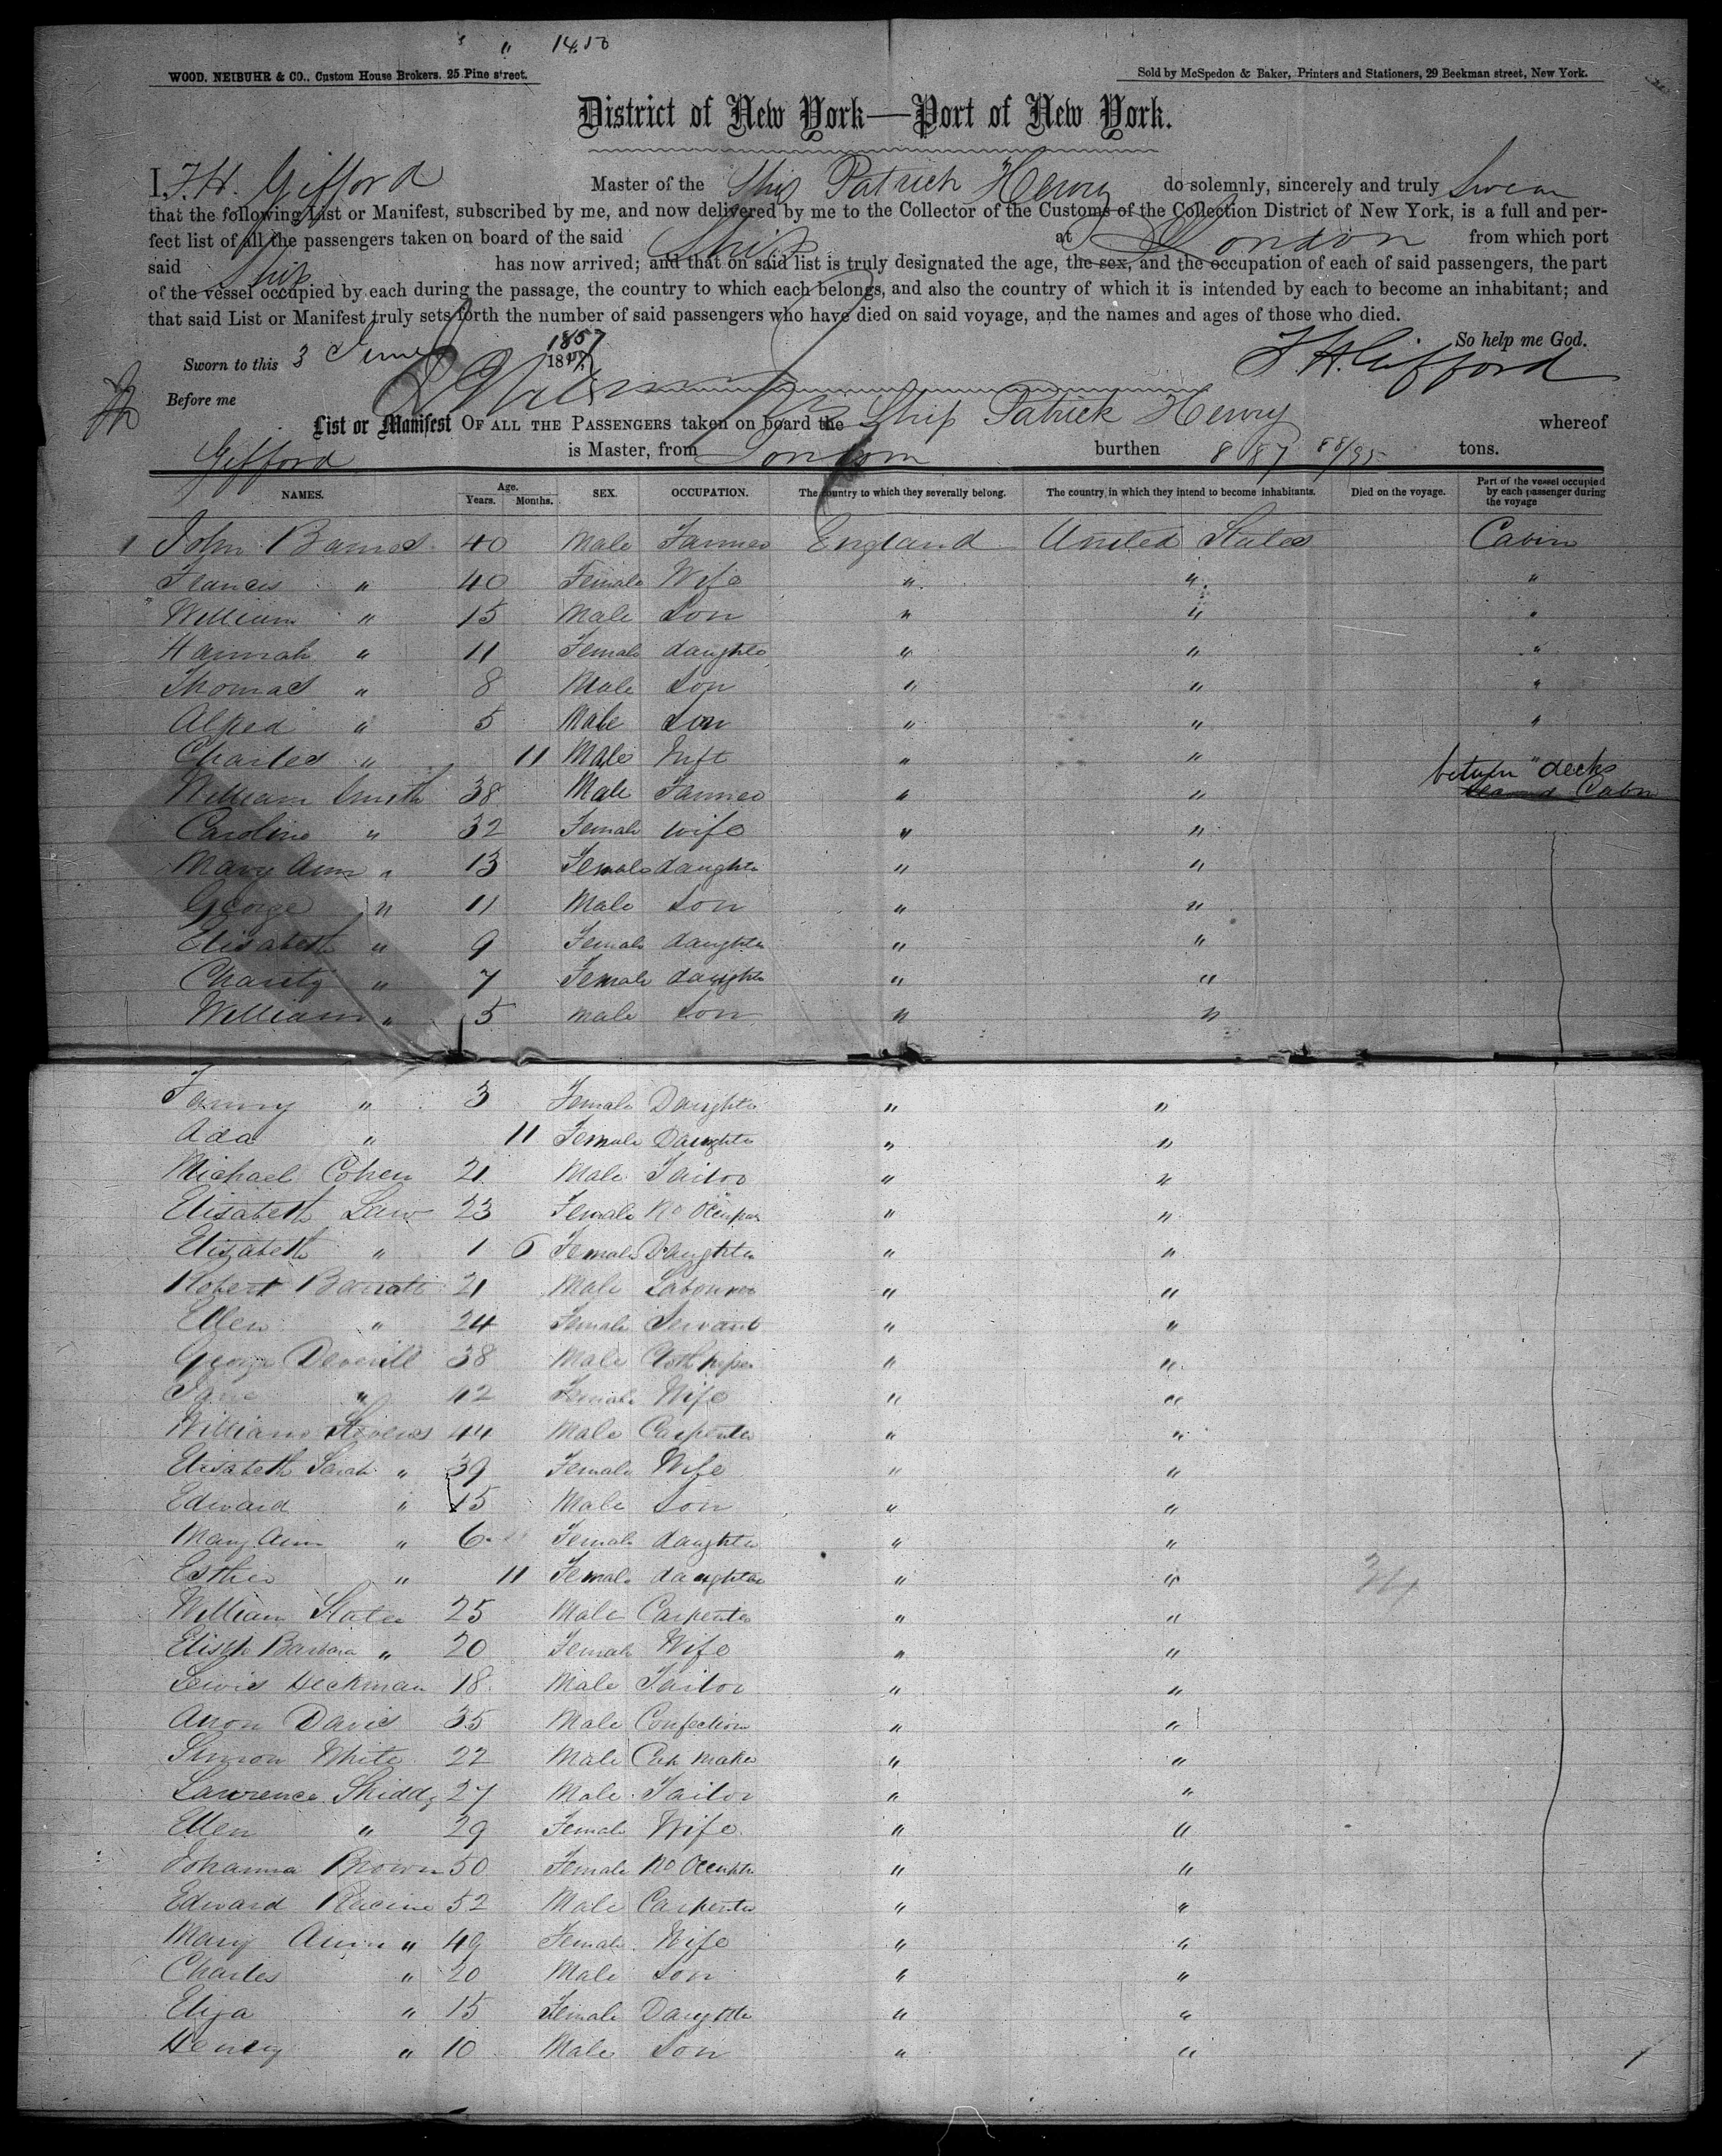 " 14.50
WOOD, NEIBUHR & CO., Custom House Brokers, 25 Pine street.
Sold by McSpedon & Baker, Printers and Stationers, 29 Beekman street, New York.
District of New York—Port of New York.
I, F.H. Gifford Master of the Ship Patrick Henry do solemnly, sincerely and truly Swear
that the following List or Manifest, subscribed by me, and now delivered by me to the Collector of the Customs of the Collection District of New York, is a full and per-
fect list of all the passengers taken on board of the said Ship at London from which port
said Ship has now arrived; and that on said list is truly designated the age, the sex, and the occupation of each of said passengers, the part
of the vessel occupied by each during the passage, the country to which each belongs, and also the country of which it is intended by each to become an inhabitant; and
that said List or Manifest truly sets forth the number of said passengers who have died on said voyage, and the names and ages of those who died.
So help me God.
Sworn to this 3 June 1857 F H Gifford
Before me
List or Manifest OF ALL THE PASSENGERS taken on board the Ship Patrick Henry whereof
Gifford is Master, from London burthen 887 88/95 tons.
NAMES. Age. Years. Months. SEX. OCCUPATION. The country to which they severally belong. The country in which they intend to become inhabitants. Died on the voyage. Part of the vessel occupied by each passenger during the voyage
1 John Barnes 40 Male Farmer England United States Cabin
Francis " 40 Female Wife " " "
William " 15 Male Son " " "
Hannah " 11 Female daughter " " "
Thomas " 8 Male Son " " "
Alfred " 5 Male Son " " "
Charles " 11 Male Inft " " "
William Smith 38 Male Farmer " " between decks
Second Cabin
Caroline " 32 Female wife " "
Mary Ann " 13 Female daughter " "
George " 11 Male Son " "
Elisabeth " 9 Female daughter " "
Charity " 7 Female daughter " "
William " 5 male Son " "
Fanny " 3 Female Daughter " "
Ada " 11 Female Daughter " "
Michael Cohen 21 Male Tailor " "
Elisabeth Law 23 Female No Occupan " "
Elizabeth " 1 6 Female Daughter " "
Robert Barratt 21 Male Labourer " "
Ellen " 24 Female Servant " "
George Deverill 38 Male " "
Jane " 42 Female Wife " "
William Stevens 44 Male Carpenter " "
Elisabeth Sarah " 39 Female Wife " "
Edward " 15 Male Son " "
Mary Ann " 6 Female daughter " "
Esther " 11 Female daughter " "
William Slater 25 Male Carpenter " "
Elisth Barbara " 20 Female Wife " "
Lewis Heckman 18 Male Tailor " "
Aron Davis 35 Male Confection " "
Simon White 22 Male Cap Maker " "
Lawrence Shiddy 27 Male Tailor " "
Ellen " 29 Female Wife " "
Johanna Brown 50 Female No Occupta " "
Edward Racine 52 Male Carpenter " "
Mary Ann " 49 Female Wife " "
Charles " 20 Male Son " "
Eliza " 15 Female Daughter " "
Henry " 10 Male Son " "